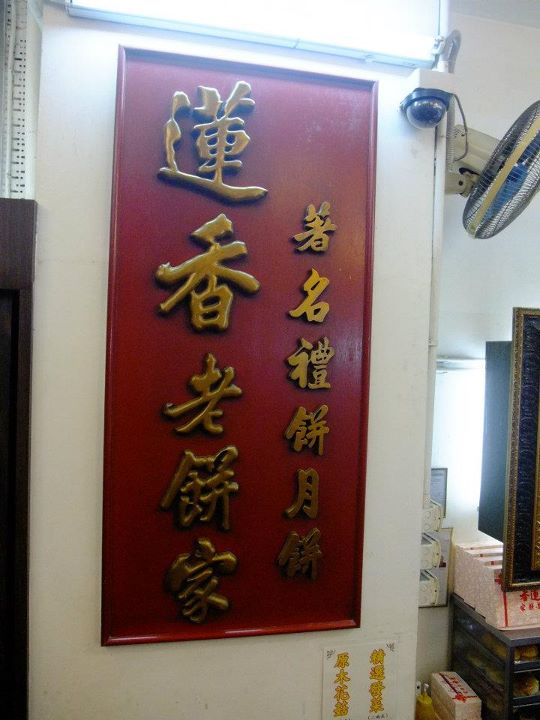 著名禮餅月餅
蓮香老餅家
精選發菜
原木花菇